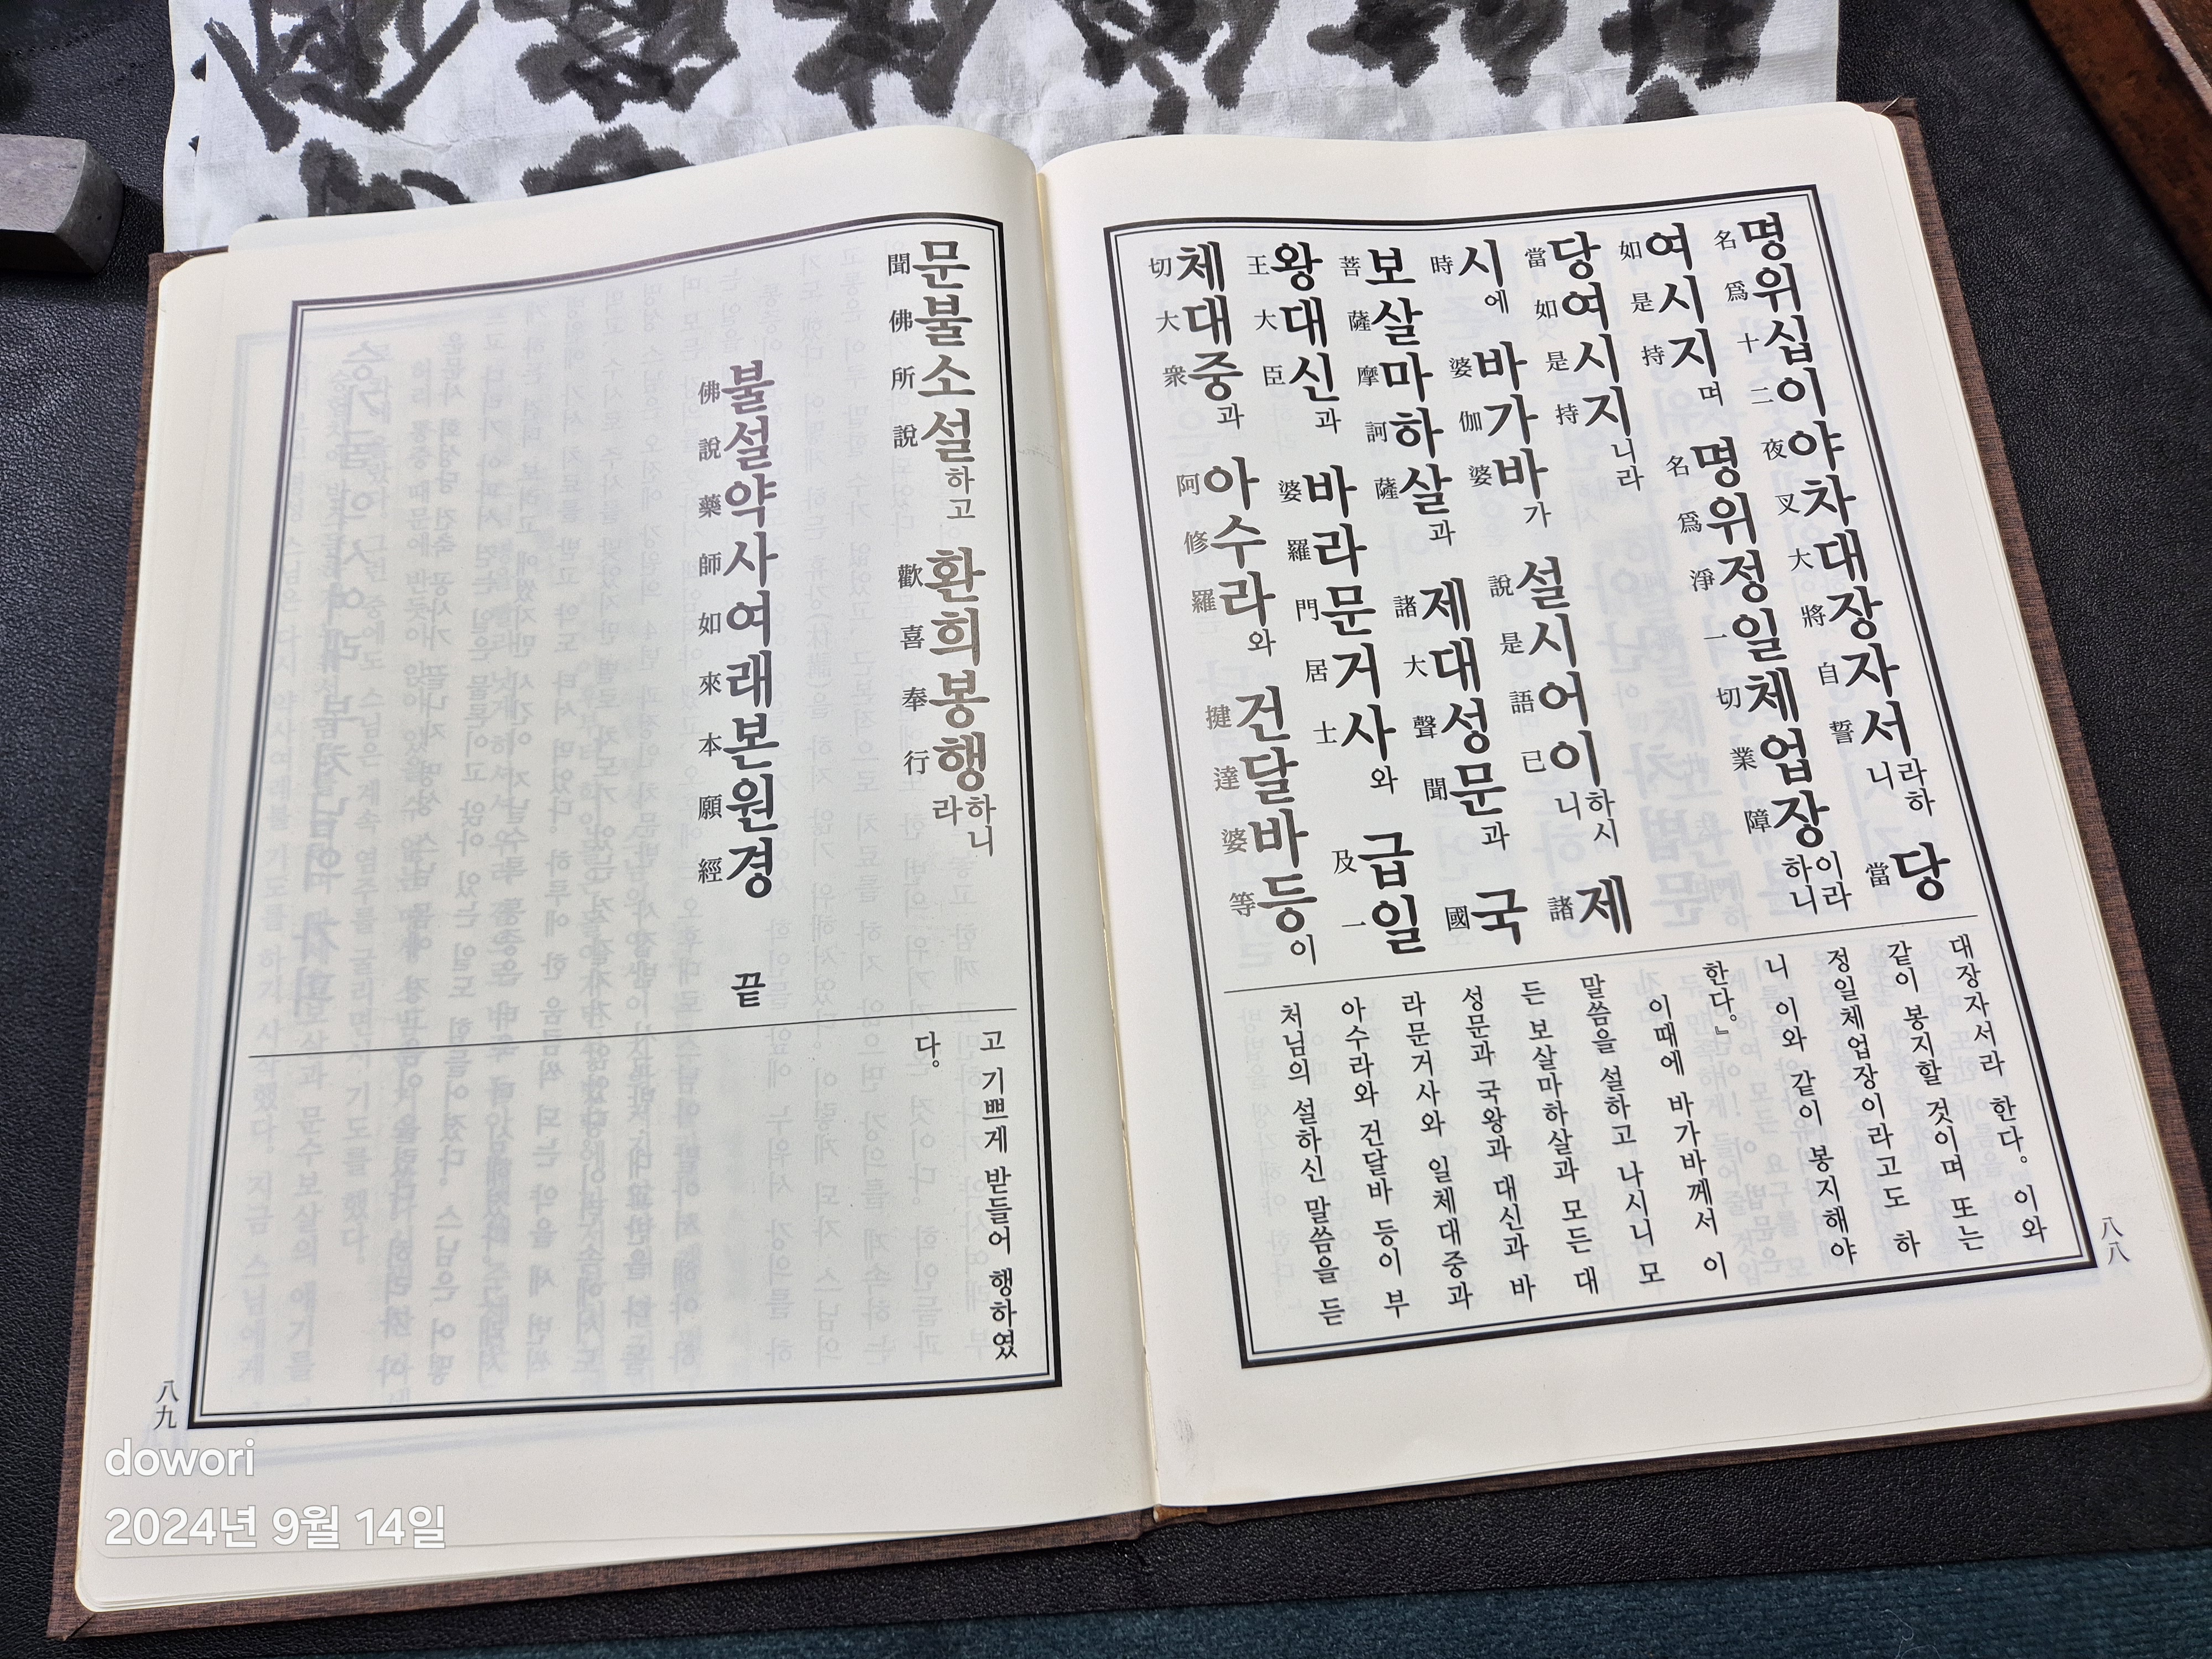 명위십이야차대장자서라하니 당
名爲十二夜叉大將自誓 當
여시지며 명위정일체업장이라하니
如是持 名爲淨一切業障
당여시지니라
當如是持
시에 바가바가 설시어이하시니 제
時 婆伽婆 說是語已 諸
보살마하살과 제대성문과 국
菩薩摩訶薩 諸大聲聞 國
왕대신과 바라문거사와 급일
王大臣 婆羅門居士 及一
체대중과 아수라와 건달바등이
切大衆 阿修羅 揵達婆等
대장자서라 한다。이와
같이 봉지할 것이며 또는
정일체업장이라고도 하
니 이와 같이 봉지해야
한다。』
이때에 바가바께서 이
말씀을 설하고 나시니 모
든 보살마하살과 모든 대
성문과 국왕과 대신과 바
라문거사와 일체대중과
아수라와 건달바 등이 부
처님의 설하신 말씀을 듣
八八
문불소설하고 환희봉행하니라
聞佛所說 歡喜奉行
불설약사여래본원경 끝
佛說藥師如來本願經
고 기쁘게 받들어 행하였
다。
八九
dowori
2024년 9월 14일